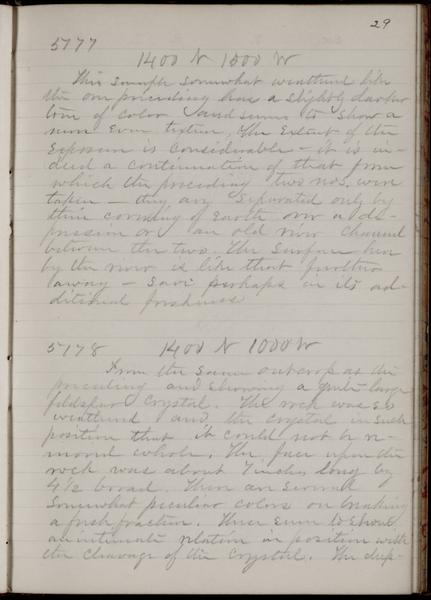 29
5777
1400 N 1500 W
This sample somewhat weathered like
the one preceding has a slightly darker
tone of color and seems to show a
more even texture. The extent of the
exposure is considerable - it is in-
deed a continuation of that from
which the preceding two nos. were
taken - they are separated only by
thin covering of Earth over a de-
pression or an old river channel
between the two. The surface here
by the river is like that further
away - save perhaps in its ad-
ditional freshness
5778 1400 N 1000 W
From the same outcrop as the
preceding and showing a quite large
feldspar crystal. The rock was so
weathered and the crystal in such
position that it could not be re-
moved whole. The face upon the
rock was about 7 inches long by
4 1/2 broad. There are several
somewhat peculiar colors on making
a fresh fracture. These seem to show
an intimate relation in position with
the cleavage of the crystal. The deep-